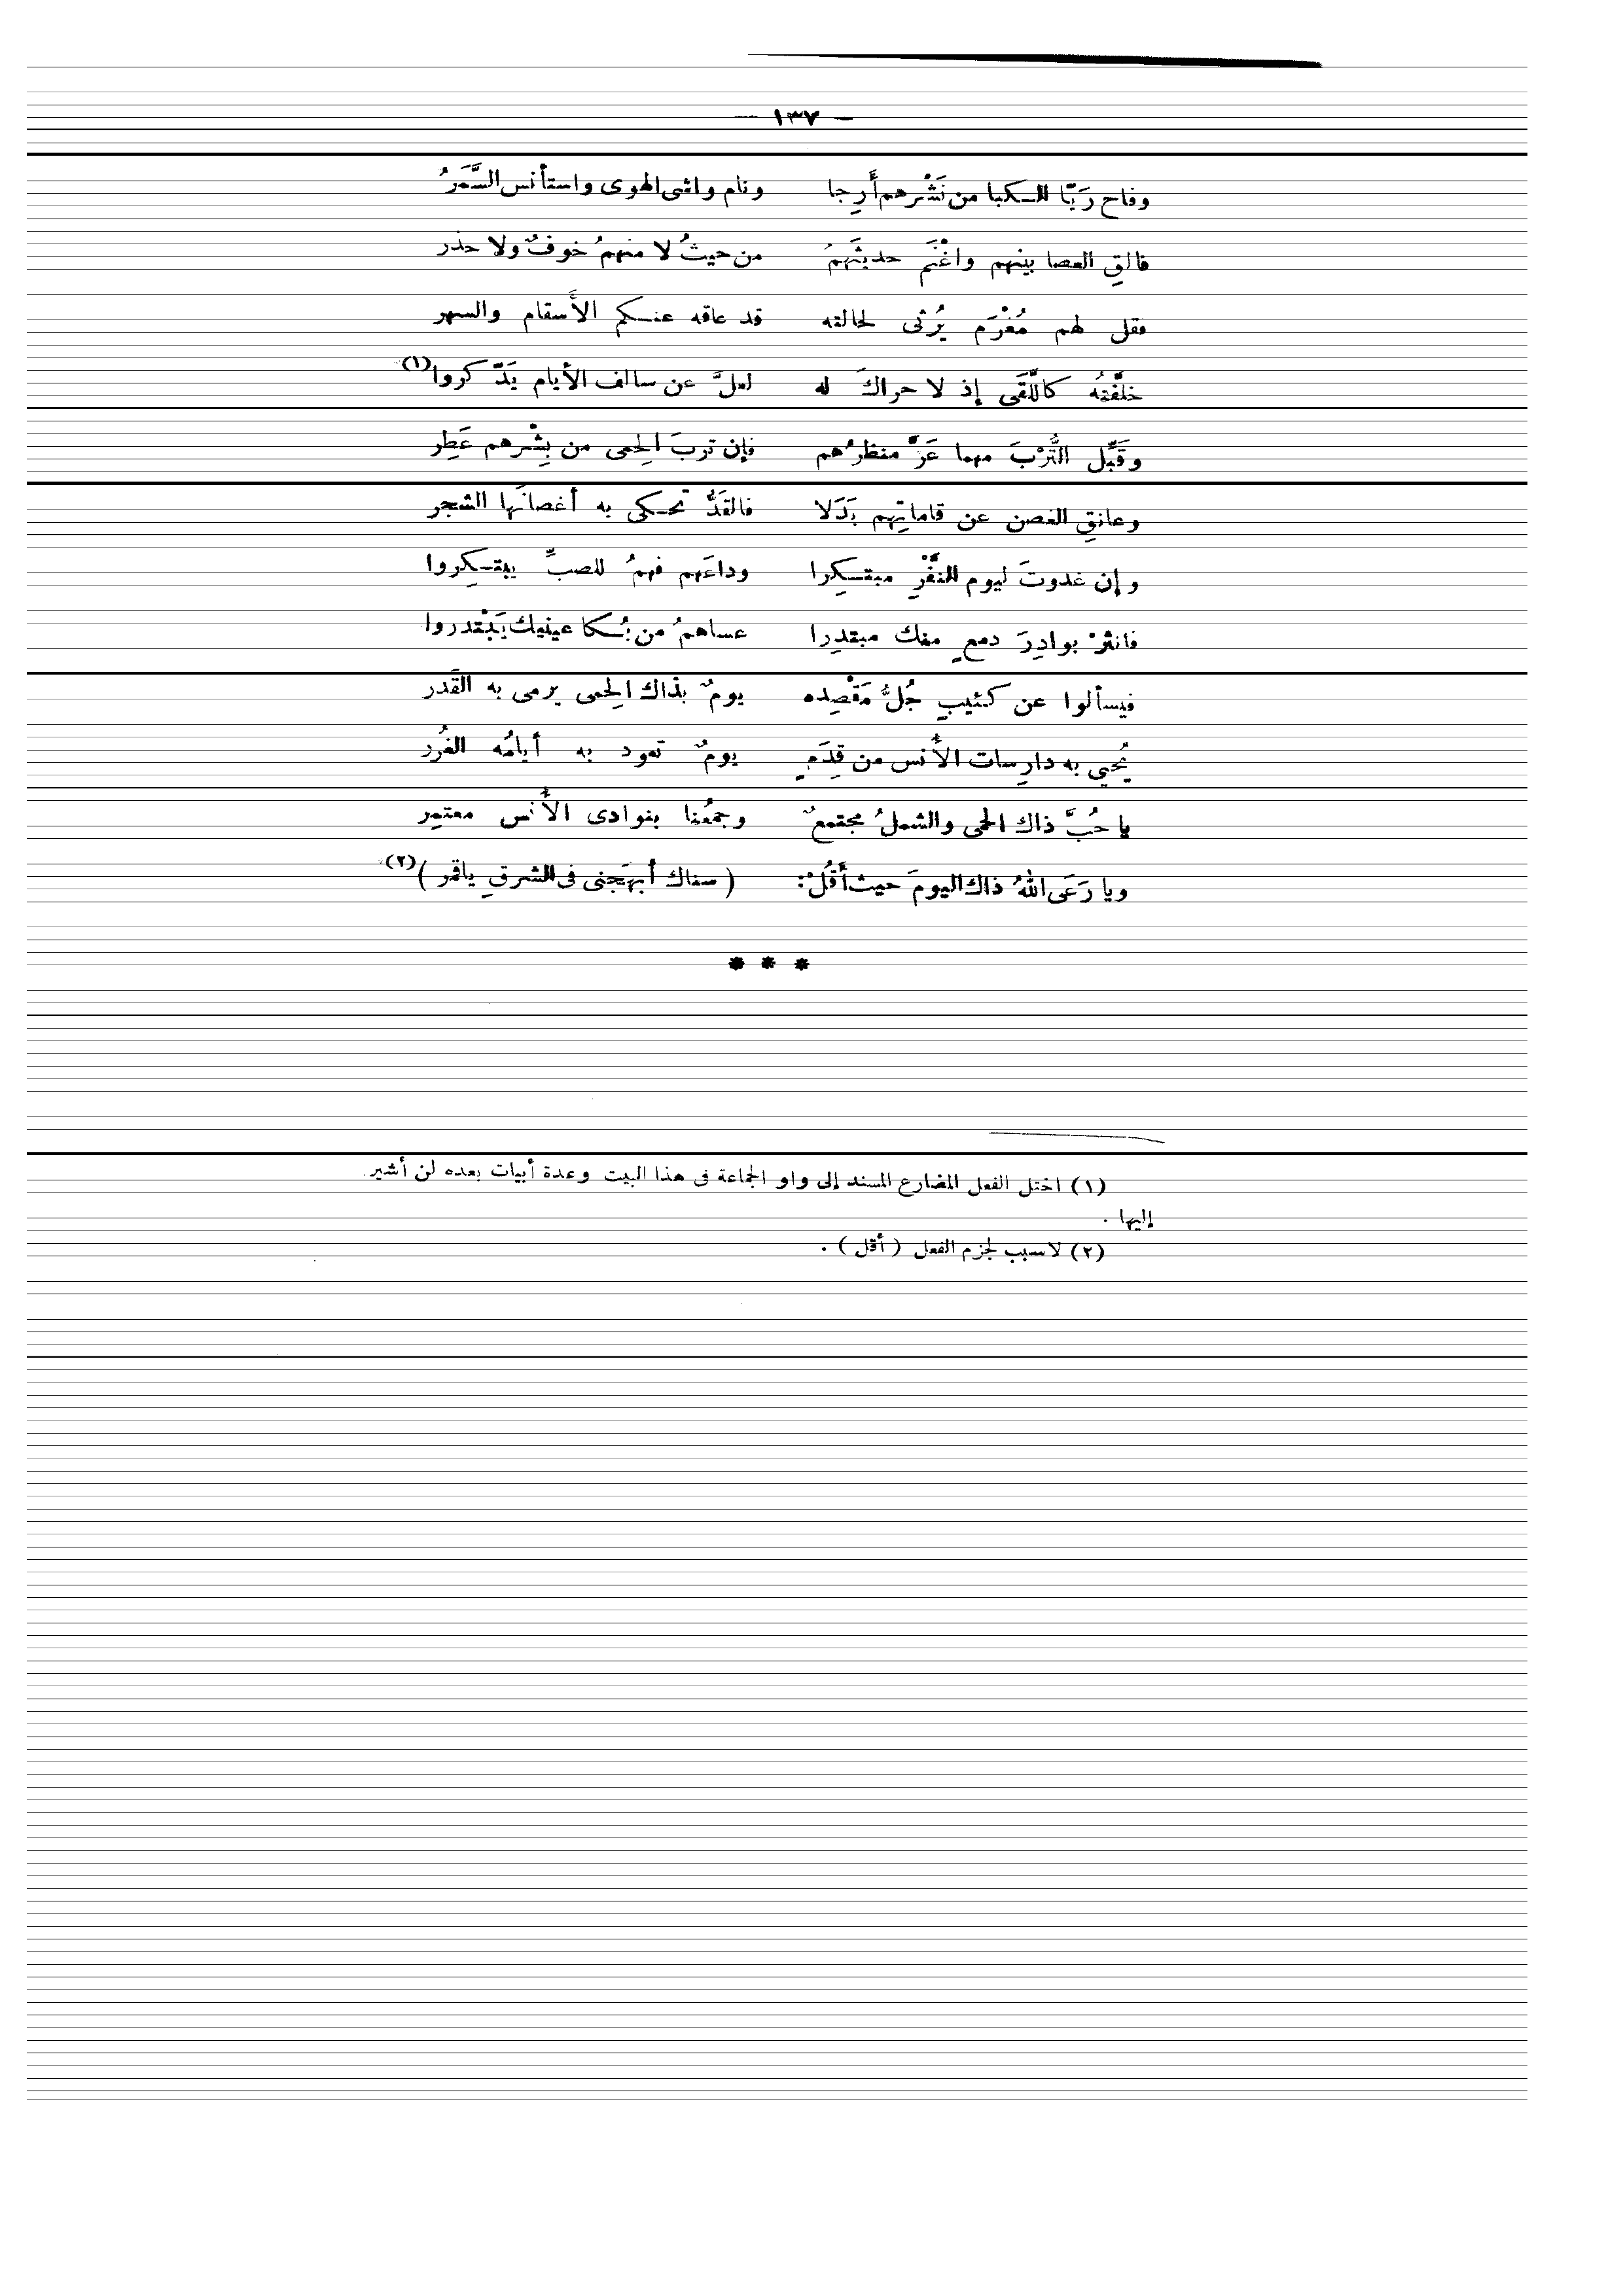 — ١٣٧ —
وفاح رَيَّا الكبا من نَشْرهم أَرِجا ونام واشى الهوى واستأنس السَّمَرُ
فالقِ العصا بينهم واغْنَم حديثَهمُ من حيثُ لا منهمُ خوفٌ ولا حذر
فقل لهم مُغْرَم يُرثى لحالته قد عاقه عنكم الأَسقام والسهر
خلَّفتُه كاللَّقَى إذ لا حراكَ له لعلَّ عن سالف الأيام يَدَّكروا(١)
وقَبِّل التُّرْبَ مهما عَزَّ منظرُهم فإن تربَ الحِمى من بِشْرهم عَطِر
وعانقِ الغصن عن قاماتِهم بَدَلا فالقَدُّ تحكى به أغصانَها الشجر
وإن غدوتَ ليوم النَّفْرِ مبتكِرا وداعَهم فهمُ للصبِّ يبتكِروا
فانثرْ بوادِرَ دمعٍ منك مبتدِرا عساهمُ من بُكا عينيك يَبْتدروا
فيسألوا عن كئيبٍ جُلُّ مَقْصِده يومٌ بذاك الحِمى يرمى به القَدَر
يُحيي به دارِسات الأُنس من قِدَمٍ يومٌ تعود به أيامُه الغُرَر
يا حُبَّ ذاك الحمى والشملُ مجتمعٌ وجمعُنا بنوادى الأُنس معتمِر
ويا رَعَى اللهُ ذاك اليومَ حيث أَقُلْ: ( سناك أبهَجَنى فى الشرقِ ياقمر )(٢)
* * *
(١) اختل الفعل المضارع المسند إلى واو الجماعة فى هذا البيت وعدة أبيات بعده لن أشير
إليها .
(٢) لاسبب لجزم الفعل ( أقل ) .